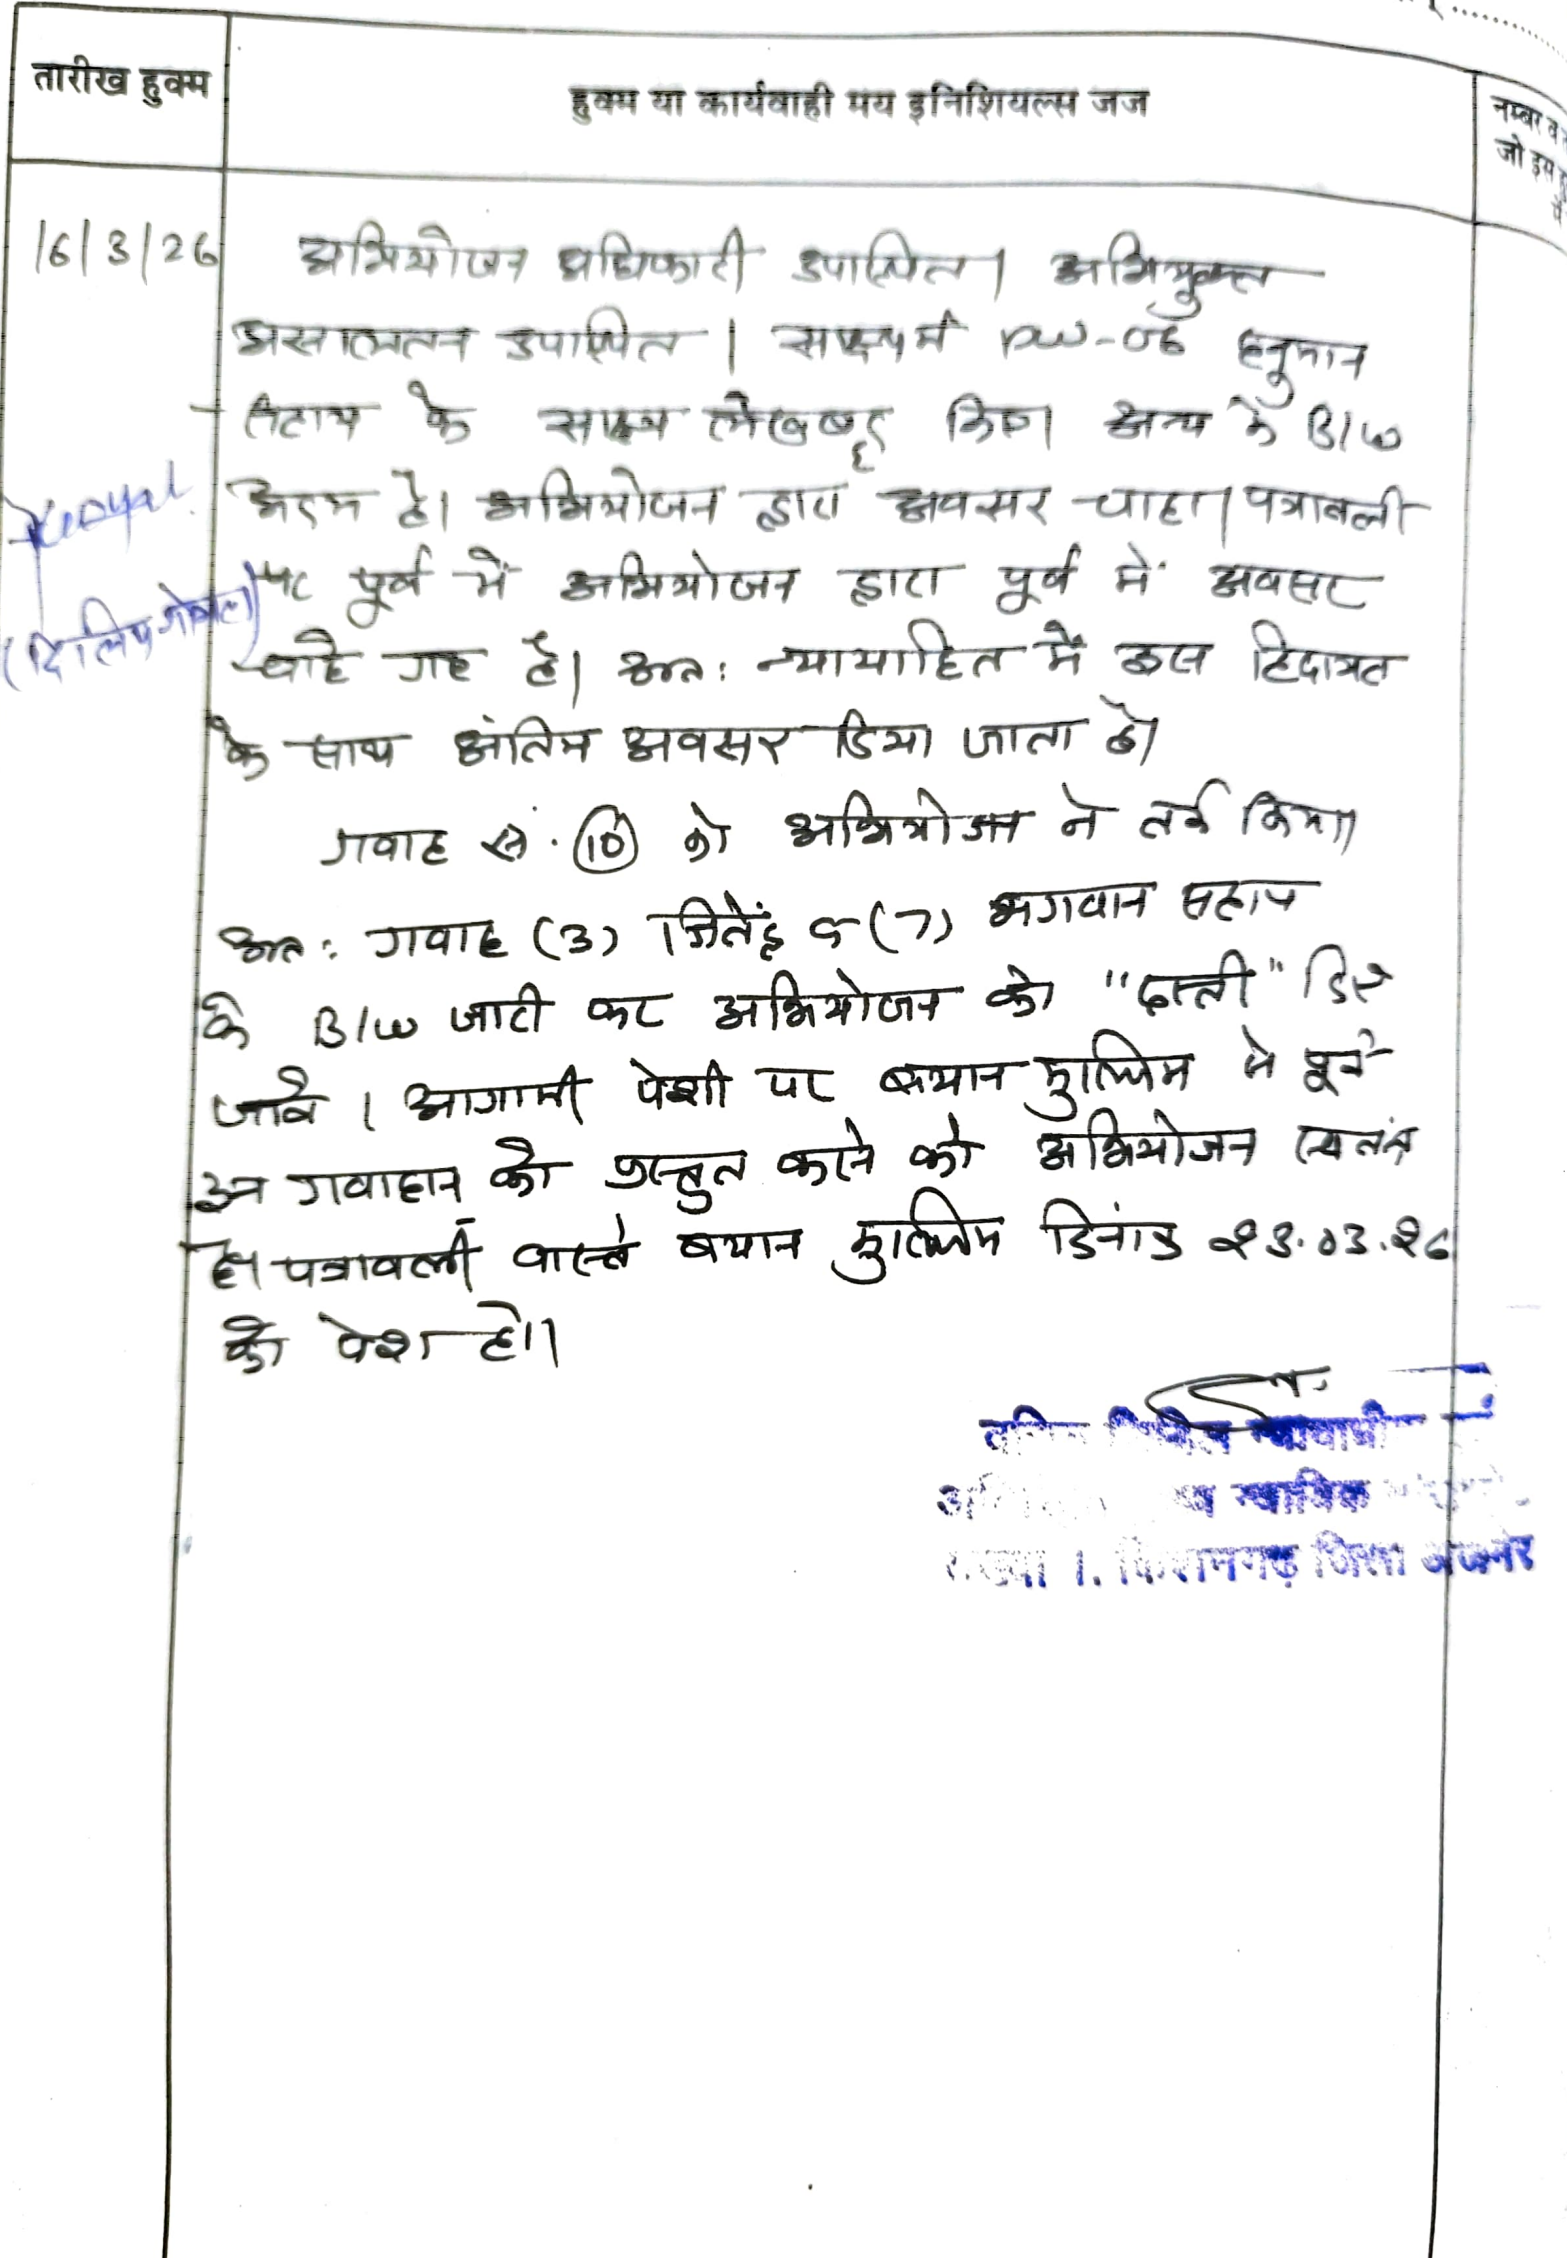 तारीख हुक्म
हुक्म या कार्यवाही मय इनिशियल्स जज
नम्बर व
जो इस
16/3/26
अभियोजन अधिकारी उपस्थित। अभियुक्त
असालतन उपस्थित। साक्ष्य में PW-06 हनुमान
सहाय के साक्ष्य लेखबद्ध किए। अन्य के B/W
अदम है। अभियोजन द्वारा अवसर चाहा। पत्रावली
पर पूर्व में अभियोजन द्वारा पूर्व में अवसर
चाहे गए है। अतः न्यायहित में इस हिदायत
के साथ अंतिम अवसर दिया जाता है।
गवाह सं. 10 को अभियोजन ने तर्क किया।
अतः गवाह (3) जितेंद्र व (7) भगवान सहाय
के B/W जारी कर अभियोजन को "दस्ती" दिए
जावे। आगामी पेशी पर बयान मुल्जिम से पूर्व
उन गवाहान को प्रस्तुत करने को अभियोजन स्वतंत्र
है। पत्रावली वास्ते बयान मुल्जिम दिनांक 23.03.26
को पेश हो।
(दिलिप गोयल)
न्यायिक
1. किशनगढ़ जिला अजमेर